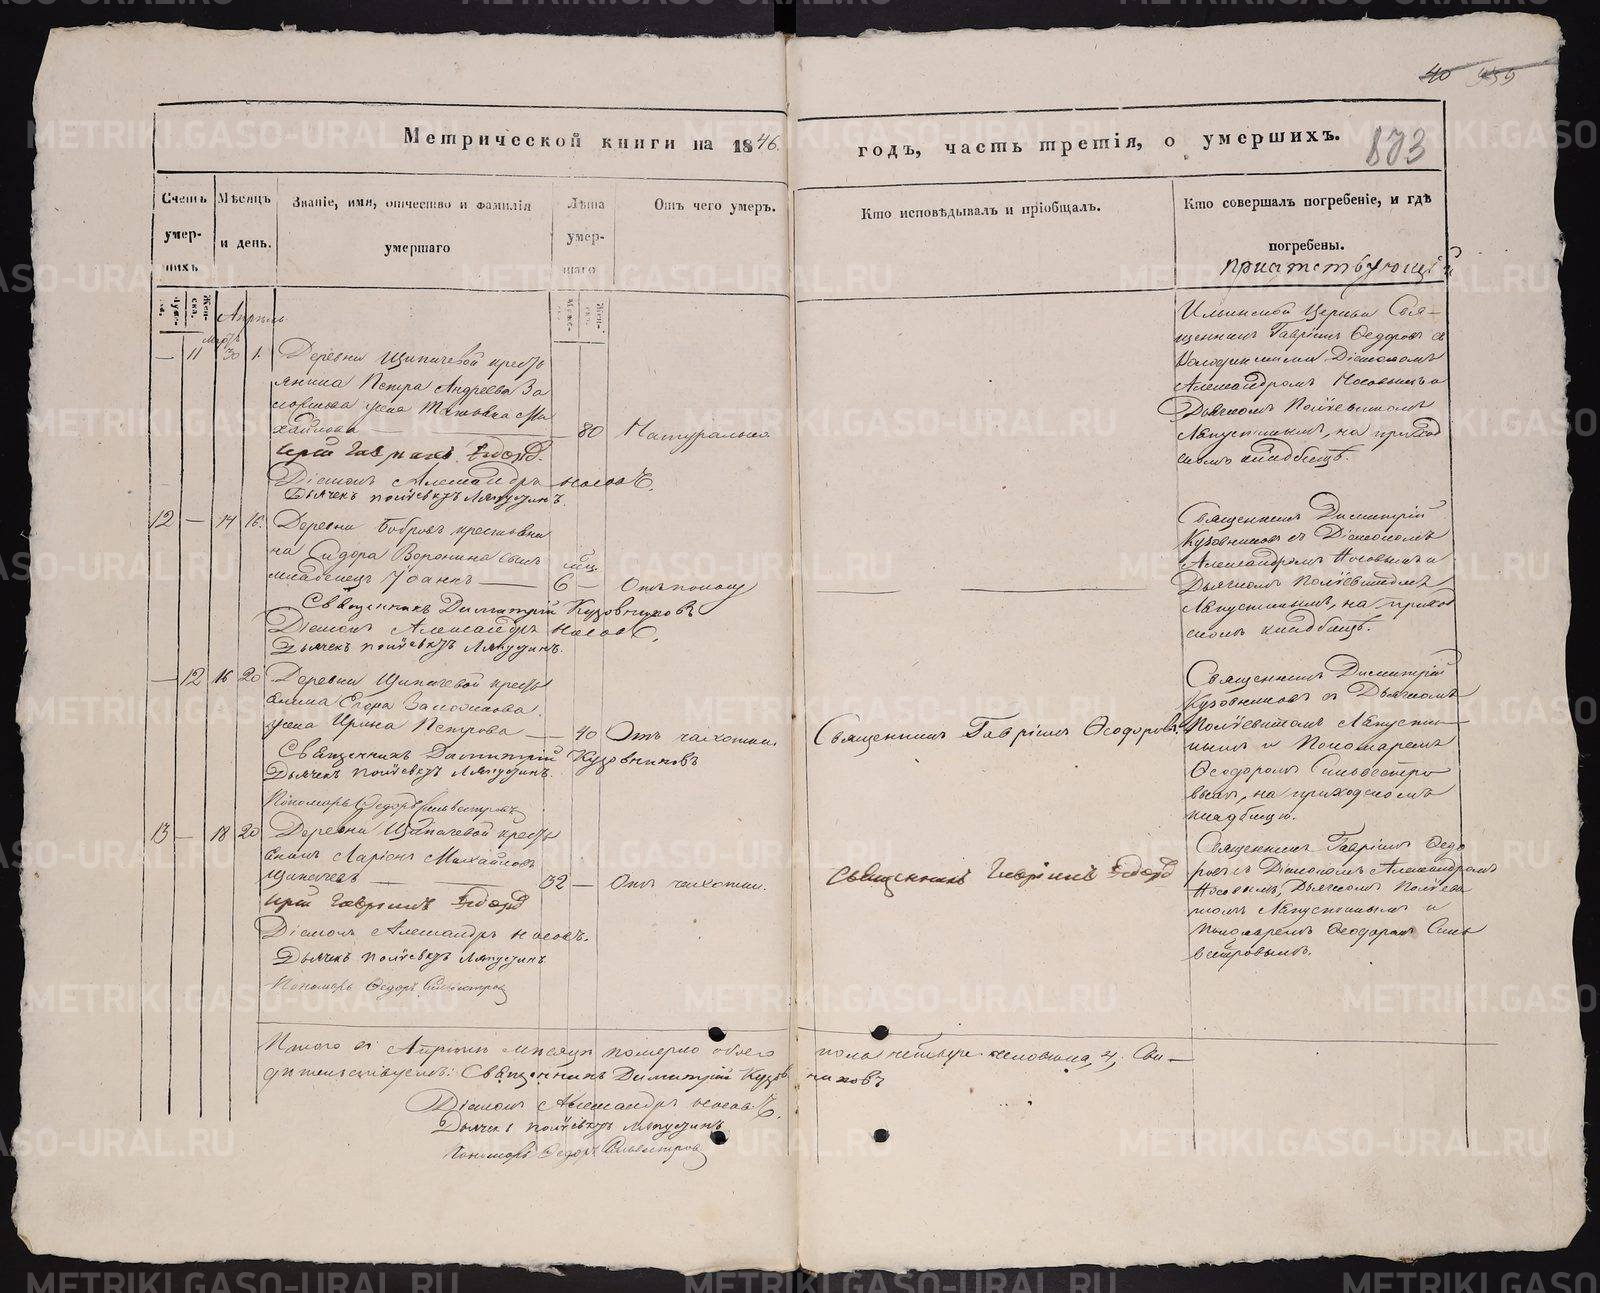 40 959
Метрической книги на 1846.
годъ, часть третія, о умершихъ.
873
Счетъ умер-шихъ
Мѣсяцъ и день.
Званіе, имя, отчество и фамилія умершаго
Лѣта умер-шаго
Отъ чего умеръ.
Кто исповѣдывалъ и пріобщалъ.
Кто совершалъ погребеніе, и гдѣ погребены.
Муже-ска.
Жен-ска.
Муже-
Жен-ска.
Апрѣль
мартъ
— 11 30 1.
Деревни Щипачевой кресть
янина Петра Андреева За
жена Татьяна Ми
хайлова — 80 Натурально
Іерей Гавріилъ Ѳедор.
Діаконъ Александръ Носовъ.
Дьячекъ Поліевктъ Ляпустинъ.
Ильинской Церкви Свя-
щенникъ Гавріилъ Ѳедоровъ
Діакономъ
Александромъ Носовымъ и
Дьячкомъ Поліевктомъ
Ляпустинымъ, на приход
скомъ кладбищѣ.
12 — 14 16.
Деревни Бобровъ крестьяни
на Сидора Воронина сынъ
младенецъ Іоаннъ — 6 мц. — Отъ поносу
Священникъ Димитрій Кузовниковъ
Діаконъ Александръ Носовъ.
Дьячекъ Поліевктъ Ляпустинъ.
Священникъ Димитрій
Кузовниковъ съ Діакономъ
Александромъ Носовымъ и
Дьячкомъ Поліевктомъ
Ляпустинымъ, на приход
скомъ кладбищѣ.
— 12 16 20
Деревни Щипачевой кресть
янина Егора
жена Ирина Петрова — 40 Отъ чахотки.
Священникъ Димитрій Кузовниковъ
Дьячекъ Поліевктъ Ляпустинъ.
Пономарь Ѳедоръ Сильвестровъ
Священникъ Гавріилъ Ѳеодоровъ.
Священникъ Димитрій
Кузовниковъ съ Дьячкомъ
Поліевктомъ Ляпусти-
нымъ и Пономаремъ
Ѳеодоромъ Сильвестро
вымъ, на приходскомъ
кладбищѣ.
13 — 18 20
Деревни Щипачевой кресть
янинъ Ларіонъ Михайловъ
Щипачевъ — 52 — Отъ чахотки.
Іерей Гавріилъ Ѳедор
Діаконъ Александръ Носовъ.
Дьячекъ Поліевктъ Ляпустинъ
Пономарь Ѳедоръ Сильвестровъ
Священникъ Гавріилъ Ѳедор
Священникъ Гавріилъ Ѳедо
ровъ съ Діакономъ Александромъ
Носовымъ, Дьячкомъ Поліевк
томъ Ляпустинымъ и
Пономаремъ Ѳеодоромъ Силь
вестровымъ.
Итого въ Апрѣлѣ мѣсяцѣ померло обоего пола четыре человѣка, 4. Сви-
дѣтельствуемъ: Священникъ Димитрій Кузовниковъ
Діаконъ Александръ Носовъ.
Дьячекъ Поліевктъ Ляпустинъ
Пономарь Ѳедоръ Сильвестровъ
METRIKI.GASO-URAL.RU